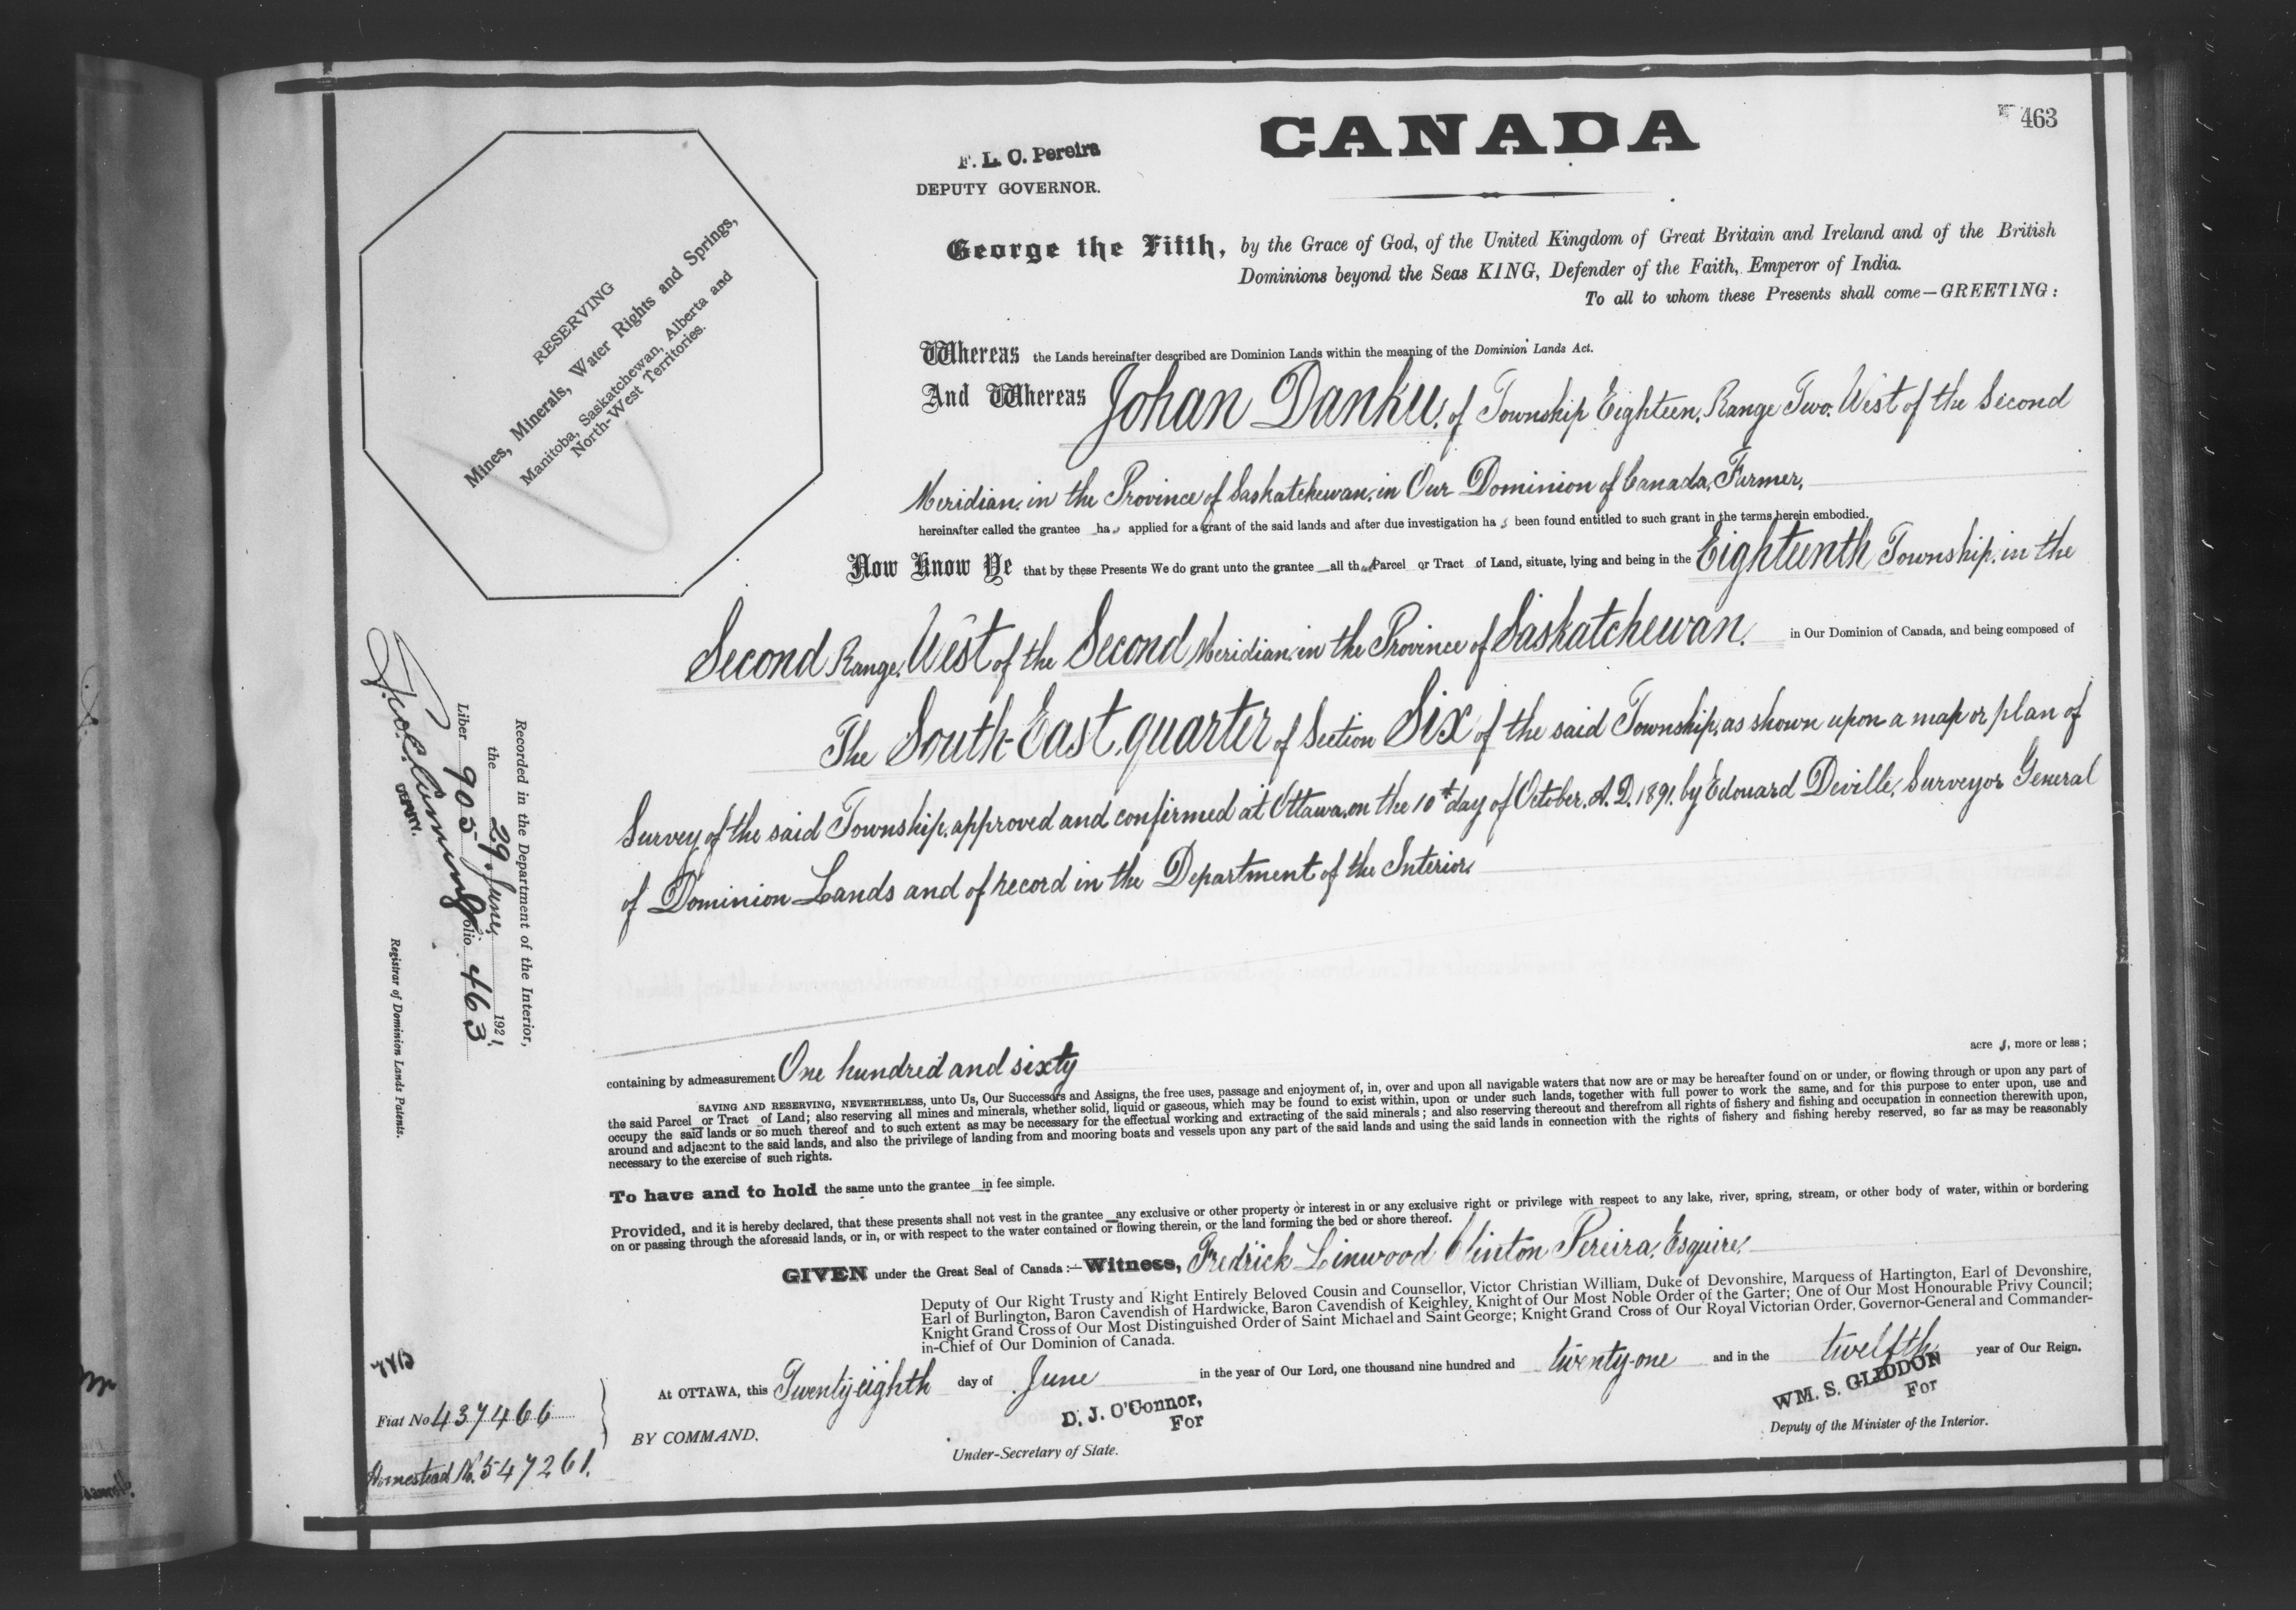 463
CANADA
F. L. C. Pereira
DEPUTY GOVERNOR.
RESERVING
Mines, Minerals, Water Rights and Springs,
Manitoba, Saskatchewan, Alberta and
North-West Territories.
George the Fifth, by the Grace of God, of the United Kingdom of Great Britain and Ireland and of the British
Dominions beyond the Seas KING, Defender of the Faith, Emperor of India.
To all to whom these Presents shall come—GREETING:
Whereas the Lands hereinafter described are Dominion Lands within the meaning of the Dominion Lands Act.
And Whereas Johan Danku, of Township Eighteen, Range Two, West of the Second
Meridian, in the Province of Saskatchewan, in Our Dominion of Canada, Farmer,
hereinafter called the grantee has applied for a grant of the said lands and after due investigation has been found entitled to such grant in the terms herein embodied.
Now Know Ye that by these Presents We do grant unto the grantee all that Parcel or Tract of Land, situate, lying and being in the Eighteenth Township, in the
Second Range, West of the Second Meridian, in the Province of Saskatchewan, in Our Dominion of Canada, and being composed of
The South-East quarter of Section Six of the said Township, as shown upon a map or plan of
Survey of the said Township, approved and confirmed at Ottawa, on the 10th day of October, A. D. 1891, by Edouard Deville, Surveyor General
of Dominion Lands and of record in the Department of the Interior,
containing by admeasurement One hundred and sixty acres, more or less;
SAVING AND RESERVING, NEVERTHELESS, unto Us, Our Successors and Assigns, the free uses, passage and enjoyment of, in, over and upon all navigable waters that now are or may be hereafter found on or under, or flowing through or upon any part of
the said Parcel or Tract of Land; also reserving all mines and minerals, whether solid, liquid or gaseous, which may be found to exist within, upon or under such lands, together with full power to work the same, and for this purpose to enter upon, use and
occupy the said lands or so much thereof and to such extent as may be necessary for the effectual working and extracting of the said minerals; and also reserving thereout and therefrom all rights of fishery and fishing and occupation in connection therewith upon,
around and adjacent to the said lands, and also the privilege of landing from and mooring boats and vessels upon any part of the said lands and using the said lands in connection with the rights of fishery and fishing hereby reserved, so far as may be reasonably
necessary to the exercise of such rights.
To have and to hold the same unto the grantee in fee simple.
Provided, and it is hereby declared, that these presents shall not vest in the grantee any exclusive or other property or interest in or any exclusive right or privilege with respect to any lake, river, spring, stream, or other body of water, within or bordering
on or passing through the aforesaid lands, or in, or with respect to the water contained or flowing therein, or the land forming the bed or shore thereof.
GIVEN under the Great Seal of Canada:—Witness, Fredrick Linwood Clinton Pereira, Esquire,
Deputy of Our Right Trusty and Right Entirely Beloved Cousin and Counsellor, Victor Christian William, Duke of Devonshire, Marquess of Hartington, Earl of Devonshire,
Earl of Burlington, Baron Cavendish of Hardwicke, Baron Cavendish of Keighley, Knight of Our Most Noble Order of the Garter; One of Our Most Honourable Privy Council;
Knight Grand Cross of Our Most Distinguished Order of Saint Michael and Saint George; Knight Grand Cross of Our Royal Victorian Order, Governor-General and Commander-
in-Chief of Our Dominion of Canada.
At OTTAWA, this Twenty-eighth day of June in the year of Our Lord, one thousand nine hundred and twenty-one and in the twelfth year of Our Reign.
BY COMMAND,
D. J. O'Connor,
For
Under-Secretary of State.
WM. S. GLIDDON
For
Deputy of the Minister of the Interior.
Fiat No 437466
Homestead No. 547261.
Recorded in the Department of the Interior,
the 29 June, 1921,
Liber 905 Folio 463
DEPUTY.
Registrar of Dominion Lands Patents.